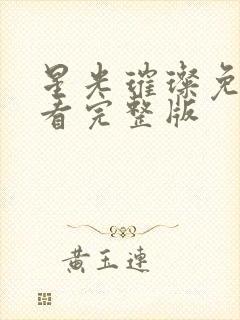 星光璀璨免
看完整版
黄玉连